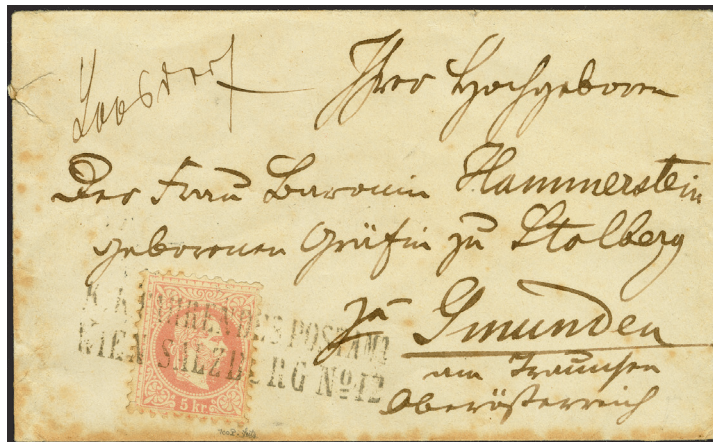 Loosdorf
Ihrer Hochgeboren
Der Frau Baronin Hammerstein
geborenen Gräfin zu Stolberg
zu Gmunden
am Traunsee
Oberösterreich
K.K. FAHRENDES POSTAMT
WIEN SALZBURG No 12
5 kr